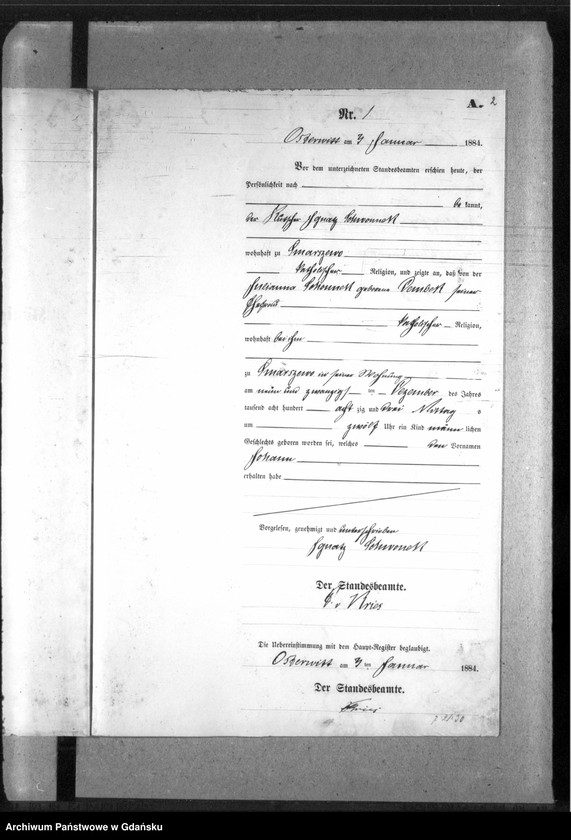 A. 2
Nr. 1
Osterwitt am 3 Januar 1884.
Vor dem unterzeichneten Standesbeamten erschien heute, der
Persönlichkeit nach
be kannt,
der Kutscher Ignatz
wohnhaft zu Smarszewo
katholischer Religion, und zeigte an, daß von der
Julianna geborene Dembek seiner
Ehefrau
katholischer Religion,
wohnhaft bei ihm
zu Smarszewo in seiner Wohnung
am neun und zwanzigsten Dezember des Jahres
tausend acht hundert acht zig und drei Mittag s
um zwölf Uhr ein Kind männ lichen
Geschlechts geboren worden sei, welches den Vornamen
Johann
erhalten habe
Vorgelesen, genehmigt und unterschrieben
Ignatz
Der Standesbeamte.
v Kries
Die Uebereinstimmung mit dem Haupt-Register beglaubigt.
Osterwitt am 3 ten Januar 1884.
Der Standesbeamte.
Kries
Archiwum Państwowe w Gdańsku